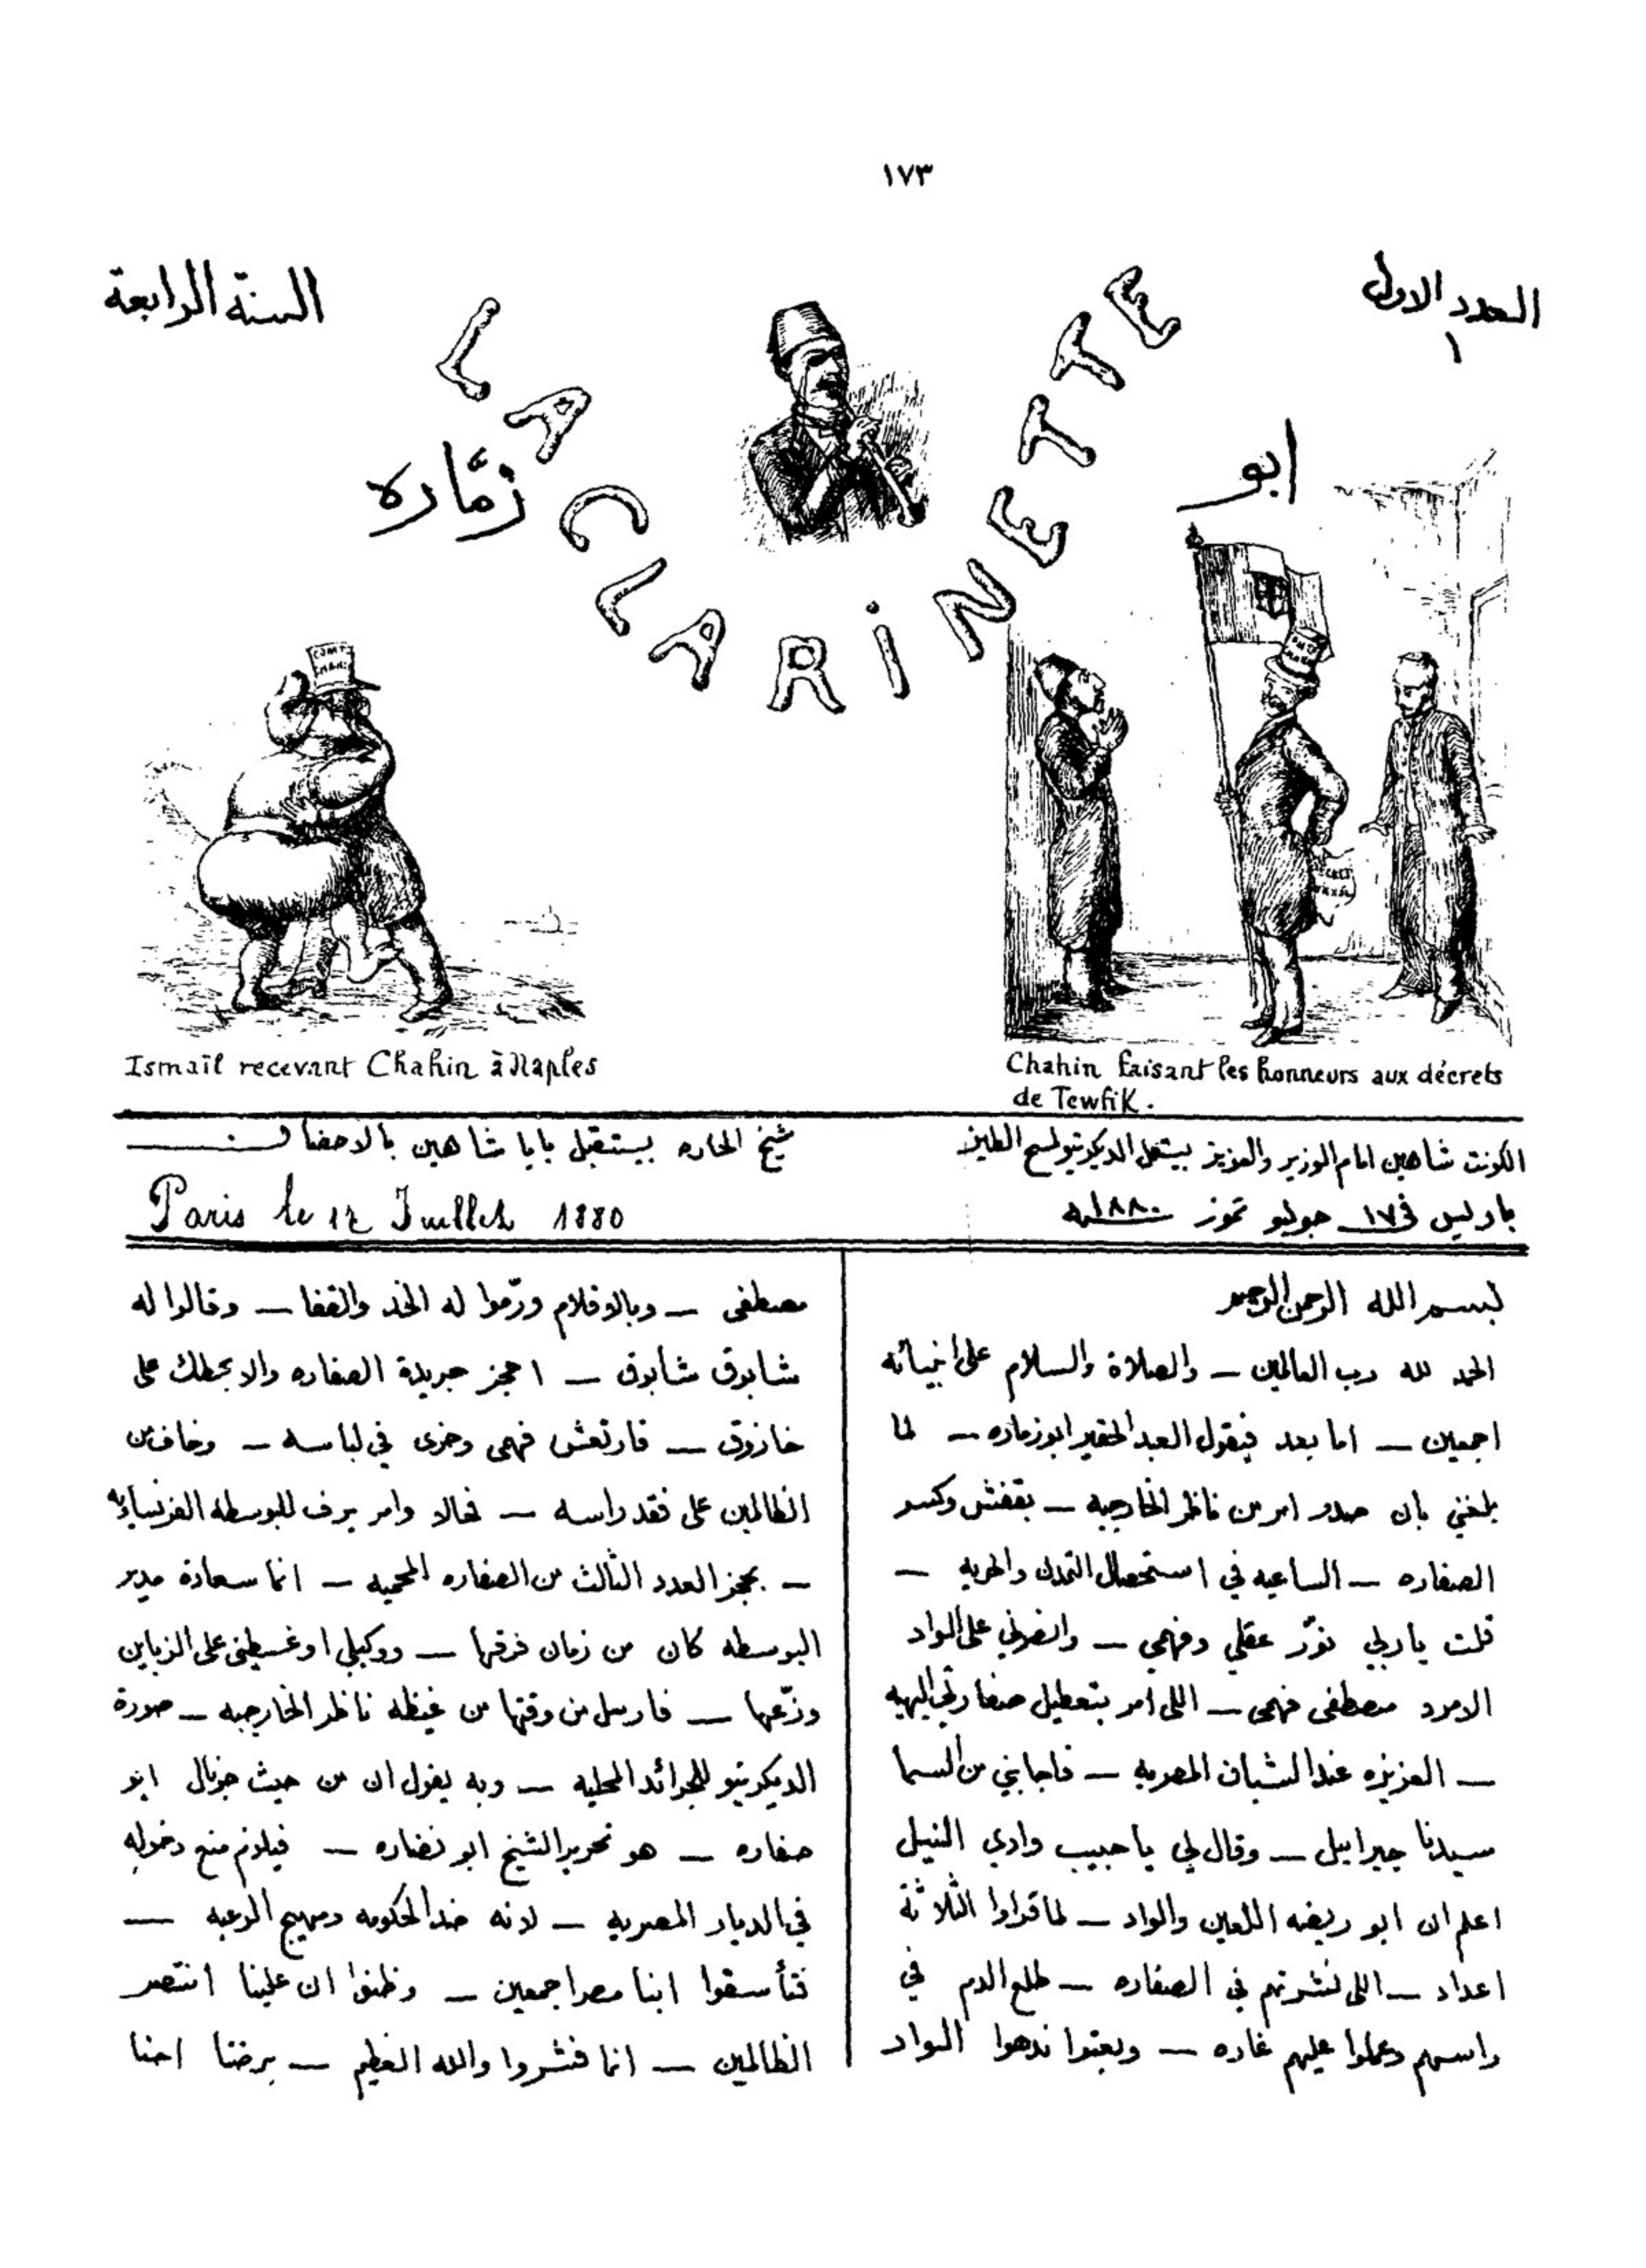 ١٧٣
العدد الاول
١
السنة الرابعة
LA CLARINETTE
ابو
زمّاره
COMTE
Ismaïl recevant Chahin à Naples
Chahin faisant les honneurs aux décrets
de Tewfik.
الكونت شاهين امام الوزير والعزيز بيستعمل الديكريتو لمسح الطيز
شيخ الحاره بيستقبل بابا شاهين بالاحضان
باريس في ١٧ جوليو تموز سنة ١٨٨٠
Paris le 17 Juillet 1880
بسم الله الرحمن الرحيم
الحمد لله رب العالمين — والصلاة والسلام على انبيائه
اجمعين — اما بعد فيقول العبد الحقير ابو زماره — لما
بلغني بان صدر امر من ناظر الخارجيه — بقفش وكسر
الصفاره — الساعيه في استحصال التمدن والحريه —
قلت يا ربي نوّر عقلي وفهمي — وانصرني على الواد
الامرد مصطفى فهمي — اللي امر بتعطيل صفارتي البهيه
— العزيزه عند الشبان المصريه — فاجابني من السما
سيدنا جبرايل — وقال لي يا حبيب وادي النيل
اعلم ان ابو ريضه اللعين والواد — لما قراوا الثلاثة
اعداد — اللي نشرتهم في الصفاره — طلع الدم في
راسهم وعملوا عليهم غاره — وبعتوا ندهوا الواد
مصطفى — وبالاقلام ورّموا له الخد والقفا — وقالوا له
شابوق شابوق — احجز جريدة الصفاره والا نحطك على
خازوق — فارتعش فهمي وخرى في لباسه — وخاف من
الظالمين على فقد راسه — فحالا وامر يرف للبوسطه الفرنساويه
— بحجز العدد الثالث من الصفاره المحميه — انما سعادة مدير
البوسطه كان من زمان فرقها — ووكيلي اوغسطين على الزباين
وزّعها — فارسل من وقتها من غيظه ناظر الخارجيه — صورة
الديكريتو للجرائد المحليه — وبه يقول ان من حيث جرنال ابو
صفاره — هو تحرير الشيخ ابو نضاره — فيلزم منع دخوله
في الديار المصريه — لانه ضد الحكومه ومهيج الرعيه —
فتأسفوا ابنا مصر اجمعين — وظنوا ان علينا انتصر
الظالمين — انما فشروا والله العظيم — برضنا احنا